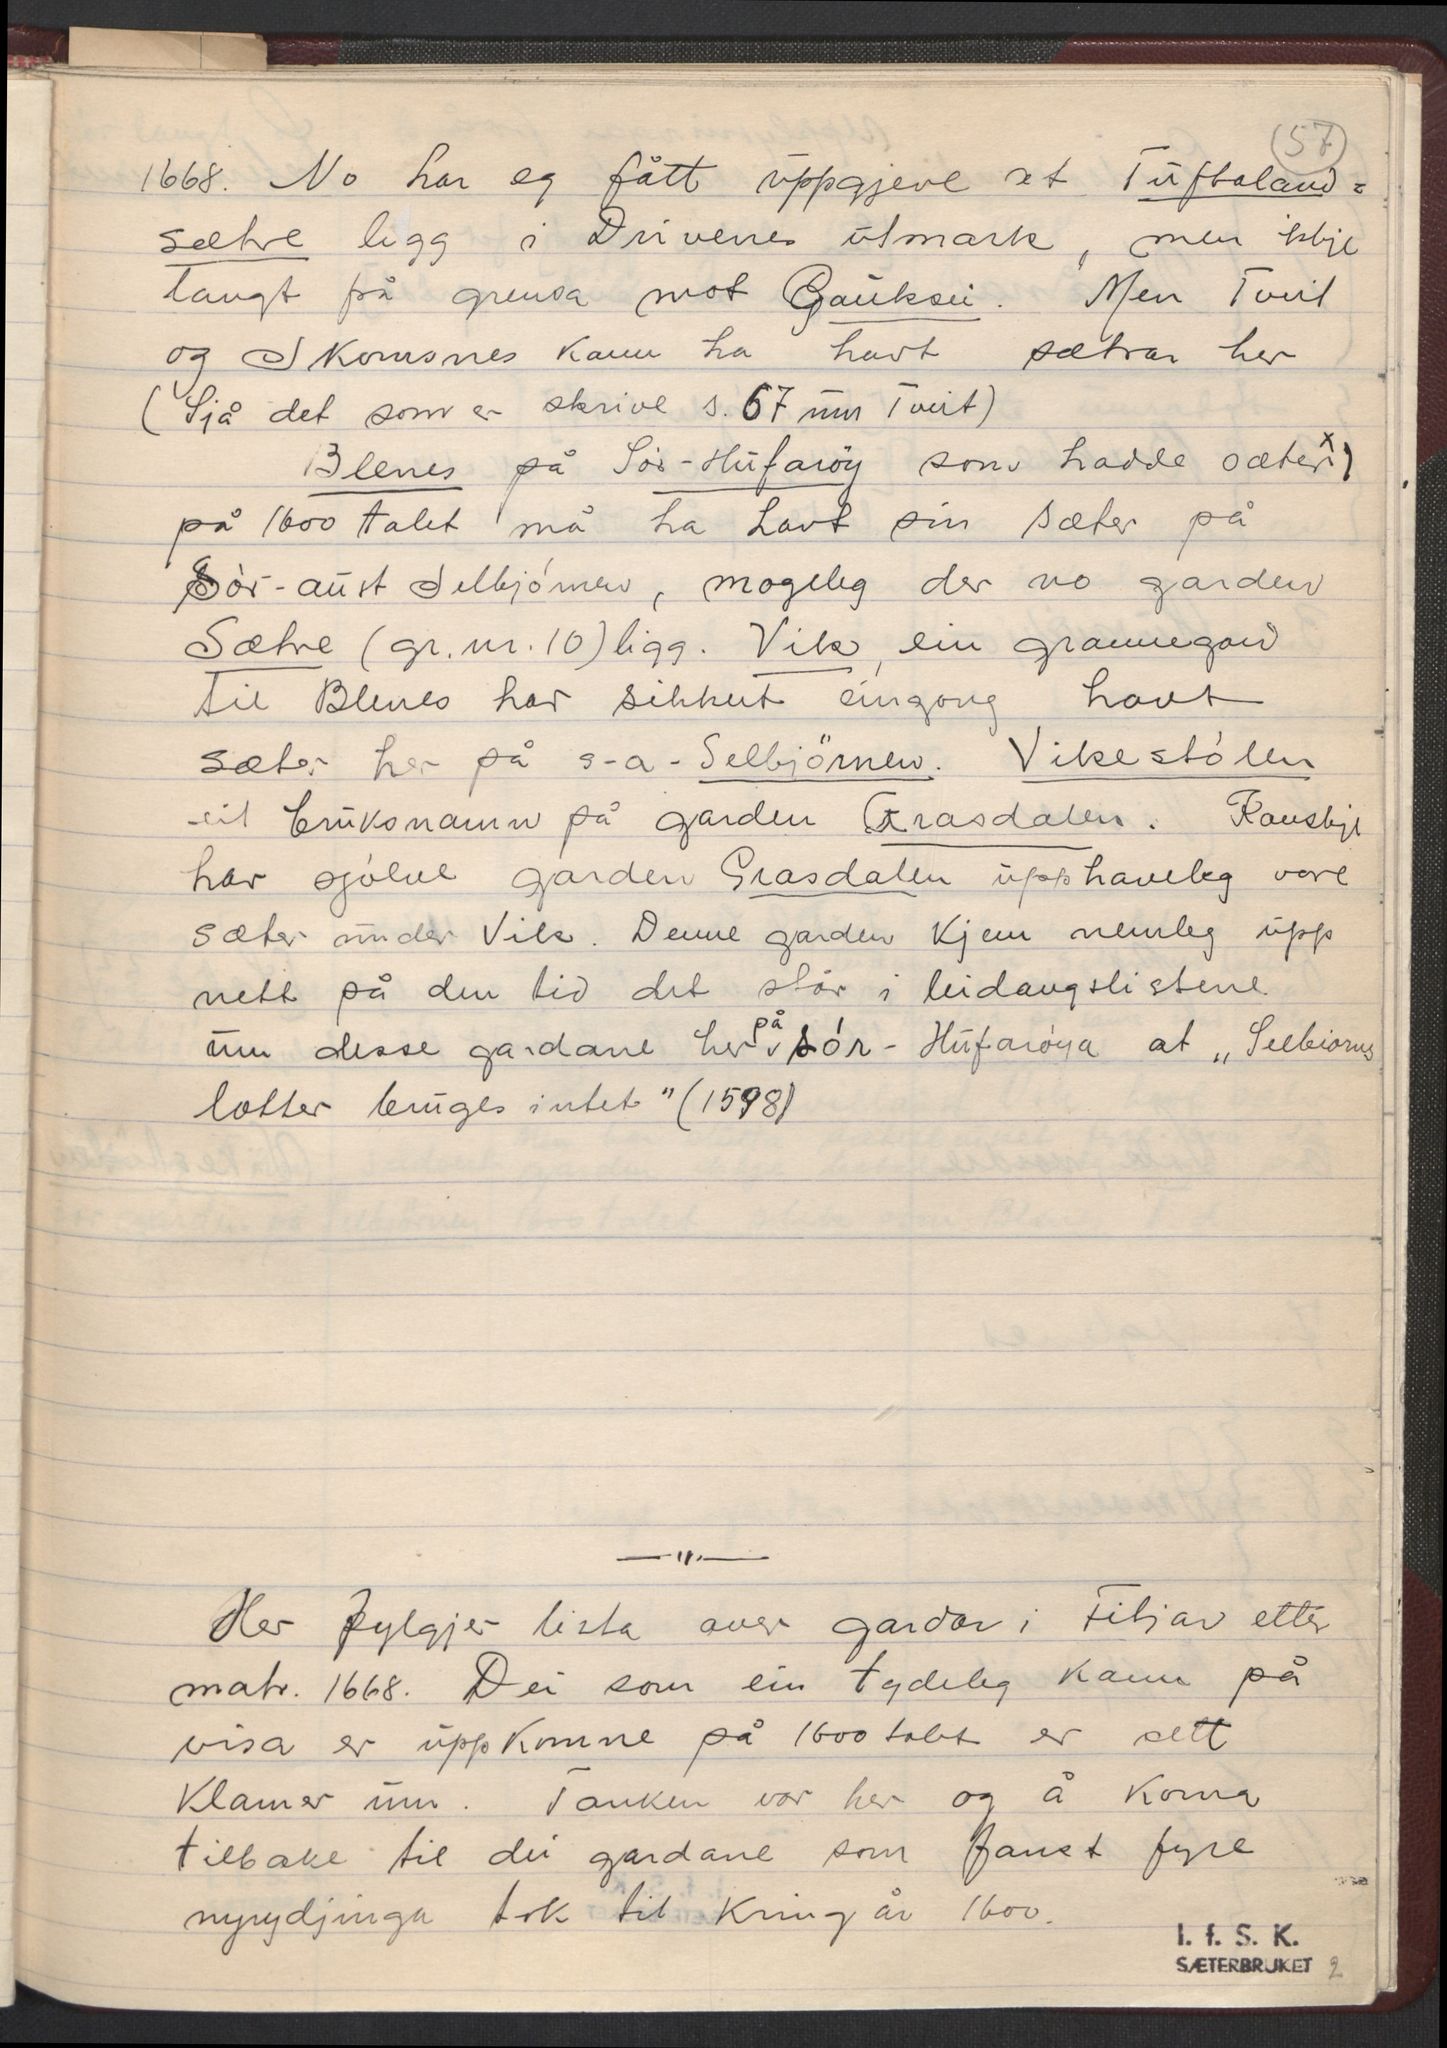 57
1668. No har eg fått uppgjeve at Tuftaland=
sætre ligg i Drivenes utmark, men ikkje
langt frå grensa mot Gauksei. Men Tveit
og Skomsnes kann ha havt sætrar her
(Sjå det som er skrive s. 67 um Tveit)
Blenes på Sør-Hufarøy som hadde sæter x)
på 1600 talet må ha havt sin sæter på
Sør-aust Selbjørnen, mogeleg der no garden
Sætre (gr.nr. 10) ligg. Vik, ein grannegard
til Blenes har sikkert eingong havt
sæter her på s-a-Selbjörnen. Vikestölen
eit bruksnamn på garden Grasdalen. Kanskje
har sjølve garden Grasdalen upphaveleg vore
sæter under Vik. Denne garden kjem nemleg upp
nett på den tid det står i leidangslistene
um desse gardane her på Sór-Hufarøya at „Selbiørns
lotter bruges intet" (1598)
Her fylgjer lista over gardar i Fitjar etter
matr. 1668. Dei som ein tydeleg kann på
visa er uppkomne på 1600 talet er sett
klamer um. Tanken var her og å koma
tilbake til dei gardane som fanst fyre
nyrydjinga tok til kring år 1600.
I. f. S. K.
SÆTERBRUKET 2